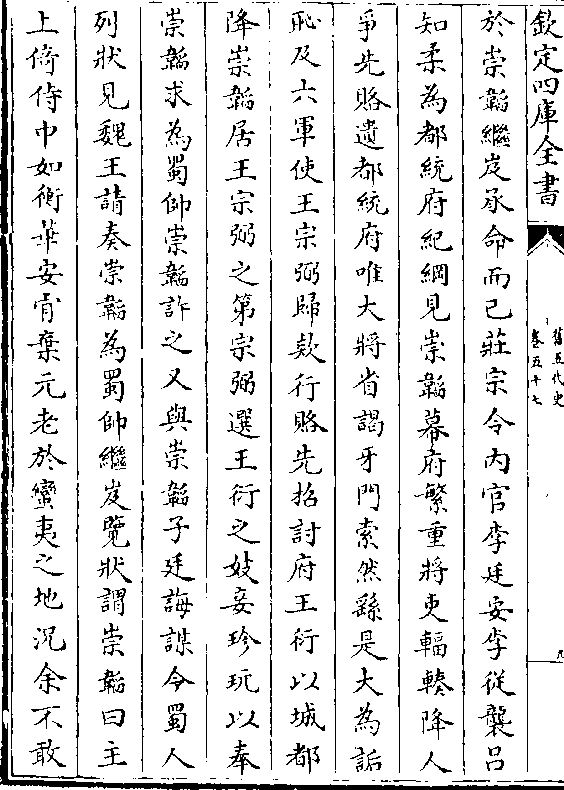 欽定四庫全書
舊五代史
卷五十七
九
於崇韜繼岌承命而已莊宗令內官李廷安李從襲呂
知柔為都統府紀綱見崇韜幕府繁重將吏輻輳降人
爭先賂遺都統府唯大將省謁牙門索然繇是大為詬
恥及六軍使王宗弼歸欵行賂先招討府王衍以城都
降崇韜居王宗弼之第宗弼選王衍之妓妾珍玩以奉
崇韜求為蜀帥崇韜許之又與崇韜子廷誨謀令蜀人
列狀見魏王請奏崇韜為蜀帥繼岌覽狀謂崇韜曰主
上倚侍中如衡華安肯棄元老於蠻夷之地況余不敢